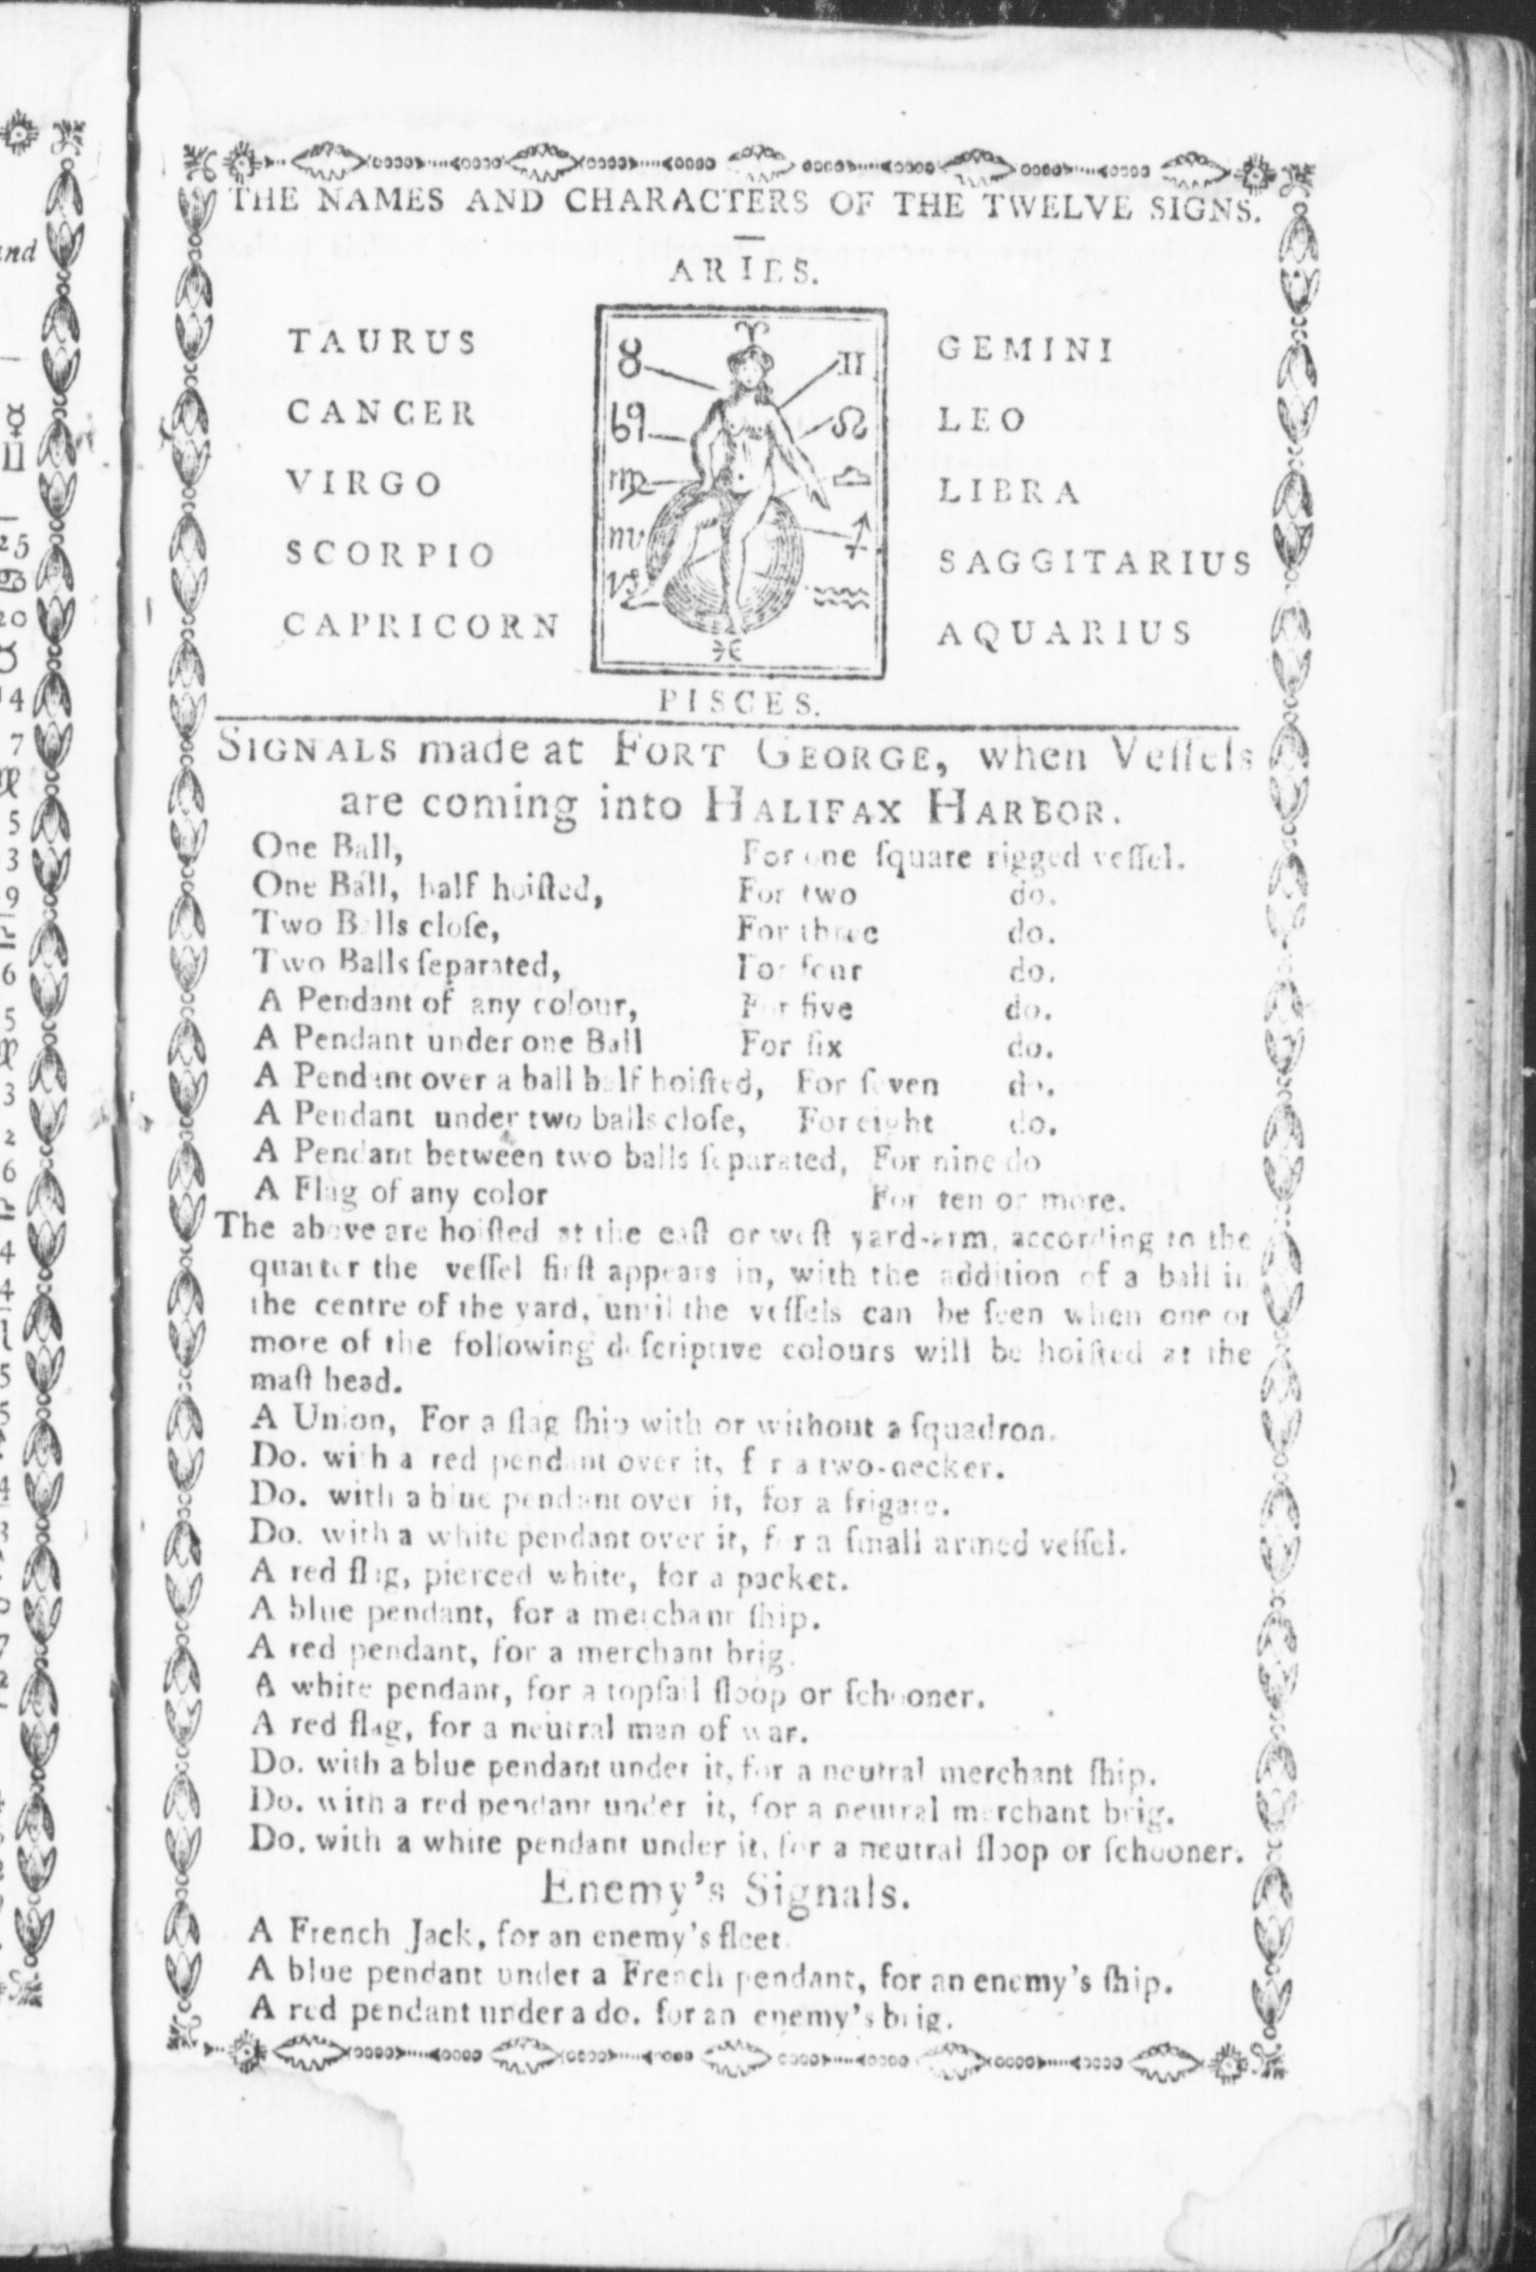 THE NAMES AND CHARACTERS OF THE TWELVE SIGNS.
ARIES.
TAURUS
CANCER
VIRGO
SCORPIO
CAPRICORN
♉ ♊
♋ ♌
♍ ♎
♏ ♐
♑ ♒
♓
GEMINI
LEO
LIBRA
SAGGITARIUS
AQUARIUS
PISCES.
SIGNALS made at FORT GEORGE, when Veſſels
are coming into HALIFAX HARBOR.
One Ball, For one ſquare rigged veſſel.
One Ball, half hoiſted, For two do.
Two Balls cloſe, For three do.
Two Balls ſeparated, For four do.
A Pendant of any colour, For five do.
A Pendant under one Ball For ſix do.
A Pendant over a ball half hoiſted, For ſeven do.
A Pendant under two balls cloſe, For eight do.
A Pendant between two balls ſeparated, For nine do
A Flag of any color For ten or more.
The above are hoiſted at the eaſt or weſt yard-arm, according to the
quarter the veſſel firſt appears in, with the addition of a ball in
the centre of the yard, until the veſſels can be ſeen when one or
more of the following deſcriptive colours will be hoiſted at the
maſt head.
A Union, For a flag ſhip with or without a ſquadron.
Do. with a red pendant over it, for a two-decker.
Do. with a blue pendant over it, for a frigate.
Do. with a white pendant over it, for a ſmall armed veſſel.
A red flag, pierced white, for a packet.
A blue pendant, for a merchant ſhip.
A red pendant, for a merchant brig.
A white pendant, for a topſail ſloop or ſchooner.
A red flag, for a neutral man of war.
Do. with a blue pendant under it, for a neutral merchant ſhip.
Do. with a red pendant under it, for a neutral merchant brig.
Do. with a white pendant under it, for a neutral ſloop or ſchooner.
Enemy's Signals.
A French Jack, for an enemy's fleet.
A blue pendant under a French pendant, for an enemy's ſhip.
A red pendant under a do. for an enemy's brig.